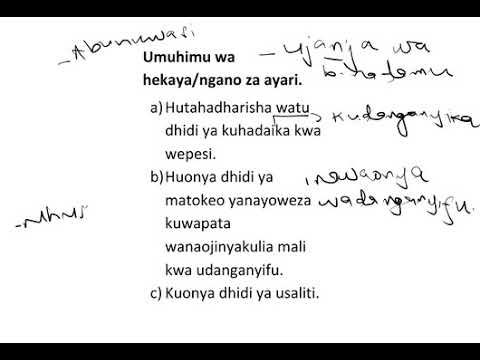 - Abunuwasi
Umuhimu wa
hekaya/ngano za ayari.
- ujanja wa
binadamu
a) Hutahadharisha watu
dhidi ya kuhadaika kwa
wepesi.
kudanganyika
b) Huonya dhidi ya
matokeo yanayoweza
kuwapata
wanaojinyakulia mali
kwa udanganyifu.
inawaonya
wadanganyifu.
c) Kuonya dhidi ya usaliti.